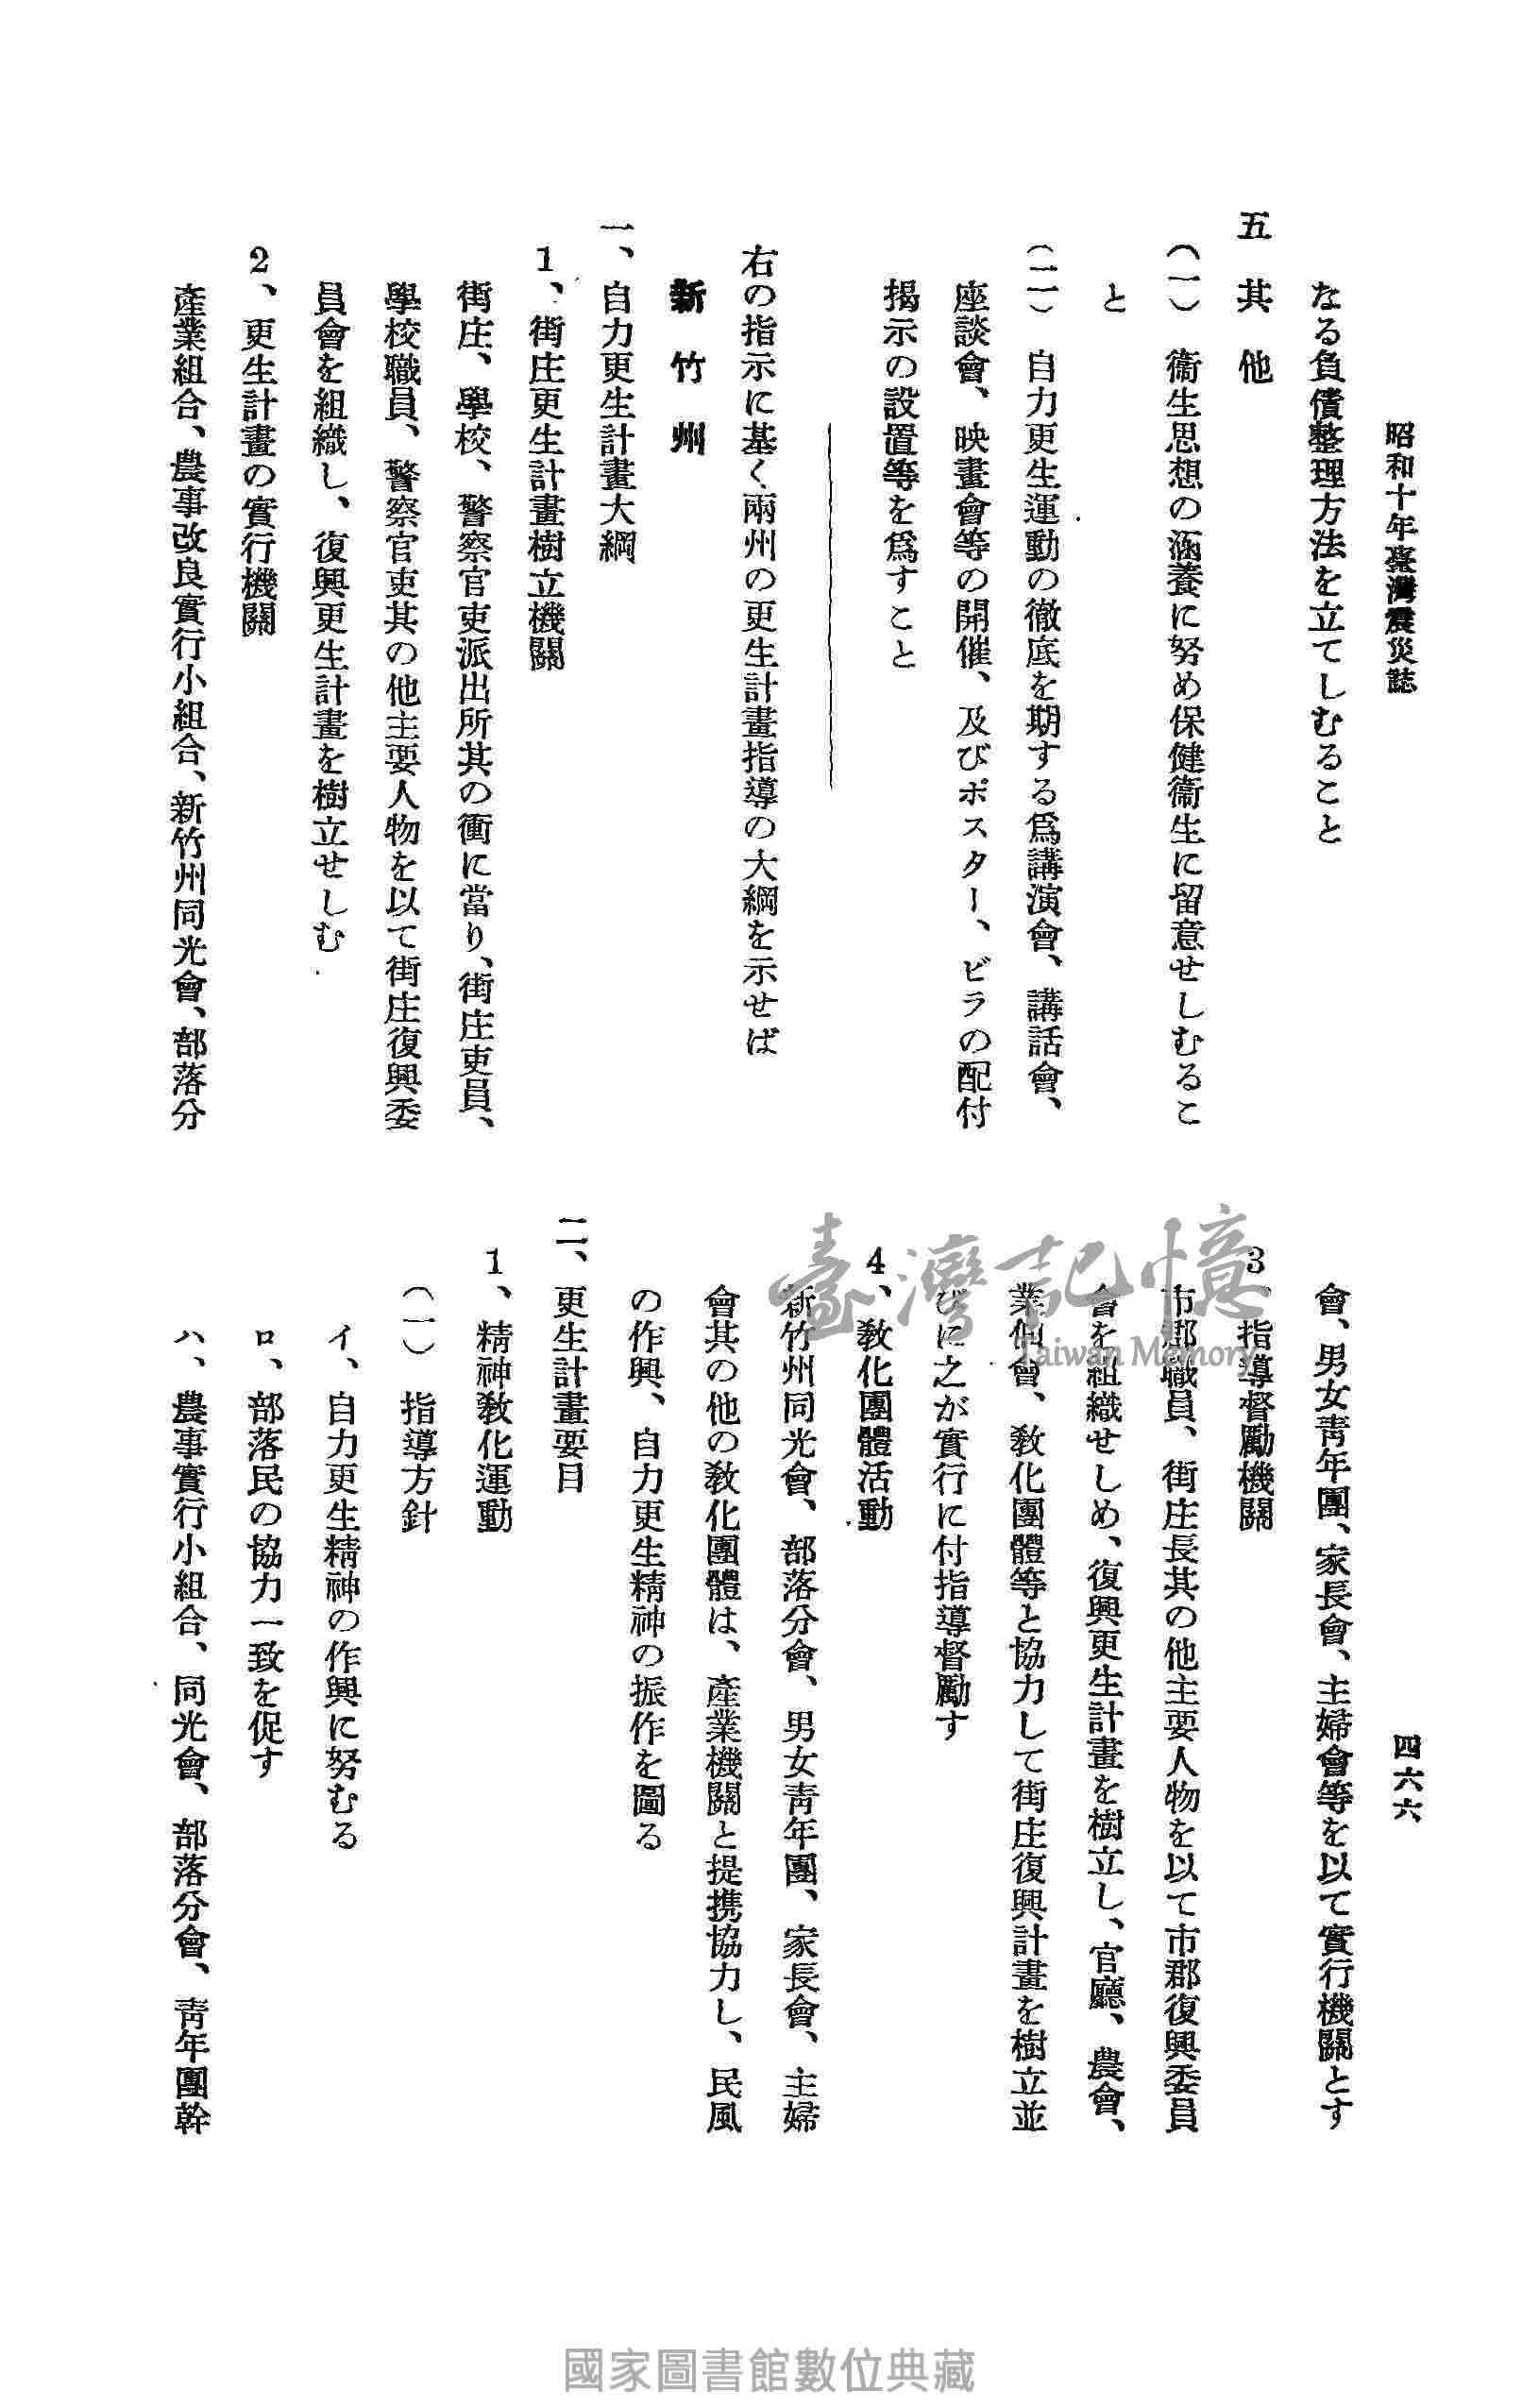 昭和十年臺灣震災誌
四六六
なる負債整理方法を立てしむること
五 其他
(一) 衞生思想の涵養に努め保健衞生に留意せしむるこ
と
(二) 自力更生運動の徹底を期する爲講演會、講話會、
座談會、映畫會等の開催、及びポスター、ビラの配付
揭示の設置等を爲すこと
右の指示に基く兩州の更生計畫指導の大綱を示せば
新竹州
一、自力更生計畫大綱
1、街庄更生計畫樹立機關
街庄、學校、警察官吏派出所其の衝に當り、街庄吏員、
學校職員、警察官吏其の他主要人物を以て街庄復興委
員會を組織し、復興更生計畫を樹立せしむ
2、更生計畫の實行機關
產業組合、農事改良實行小組合、新竹州同光會、部落分
會、男女靑年團、家長會、主婦會等を以て實行機關とす
3、指導督勵機關
市郡職員、街庄長其の他主要人物を以て市郡復興委員
會を組織せしめ、復興更生計畫を樹立し、官廳、農會、
業佃會、敎化團體等と協力して街庄復興計畫を樹立並
びに之が實行に付指導督勵す
4、敎化團體活動
新竹州同光會、部落分會、男女靑年團、家長會、主婦
會其の他の敎化團體は、產業機關と提携協力し、民風
の作興、自力更生精神の振作を圖る
二、更生計畫要目
1、精神敎化運動
(一) 指導方針
イ、自力更生精神の作興に努むる
ロ、部落民の協力一致を促す
ハ、農事實行小組合、同光會、部落分會、靑年團幹
臺灣記憶
Taiwan Memory
國家圖書館數位典藏